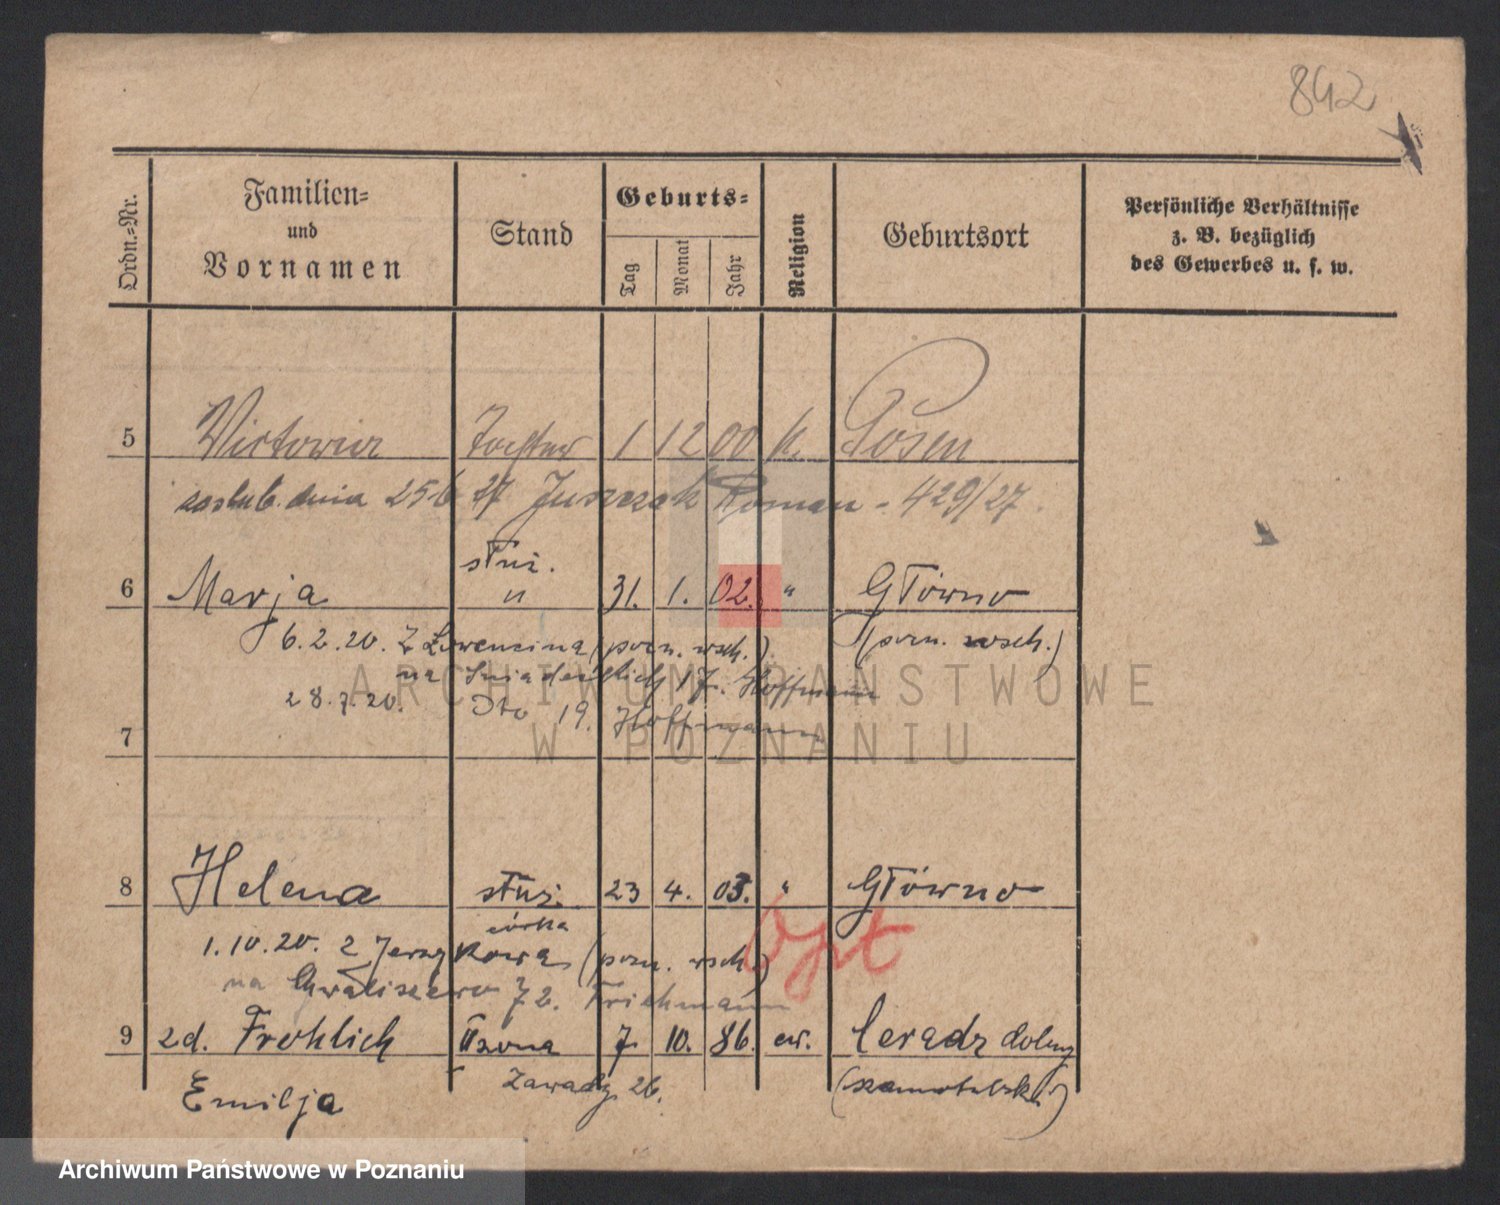 842
Ordn.=Nr.
Familien=
und
Vornamen
Stand
Geburts=
Tag
Monat
Jahr
Religion
Geburtsort
Persönliche Verhältnisse
z. B. bezüglich
des Gewerbes u. s. w.
5 Victoria Tochter 1 12 00 k. Posen
zaślub. dnia 25 6 27 Juszczak Roman - 429/27.
służ.
6 Marja " 31. 1. 02. " Główno
6.2.20. Z Ławencina (pozn. wsch.) (pozn. wsch.)
na Śniadeckich 17. Hoffmann
28.7.20. Dto 19. Hoffmann
7
8 Helena służ. 23 4. 03. " Główno
córka
1.10.20. z Jerzykowa (pozn. wsch.)
Opt
na Chwaliszewo 72. Frichmann
9 2d. Frohlich żona 7. 10. 86. ew. Ceradz dolny
Emilja Zawady 26. (szamotulski)
ARCHIWUM PAŃSTWOWE
W POZNANIU
Archiwum Państwowe w Poznaniu